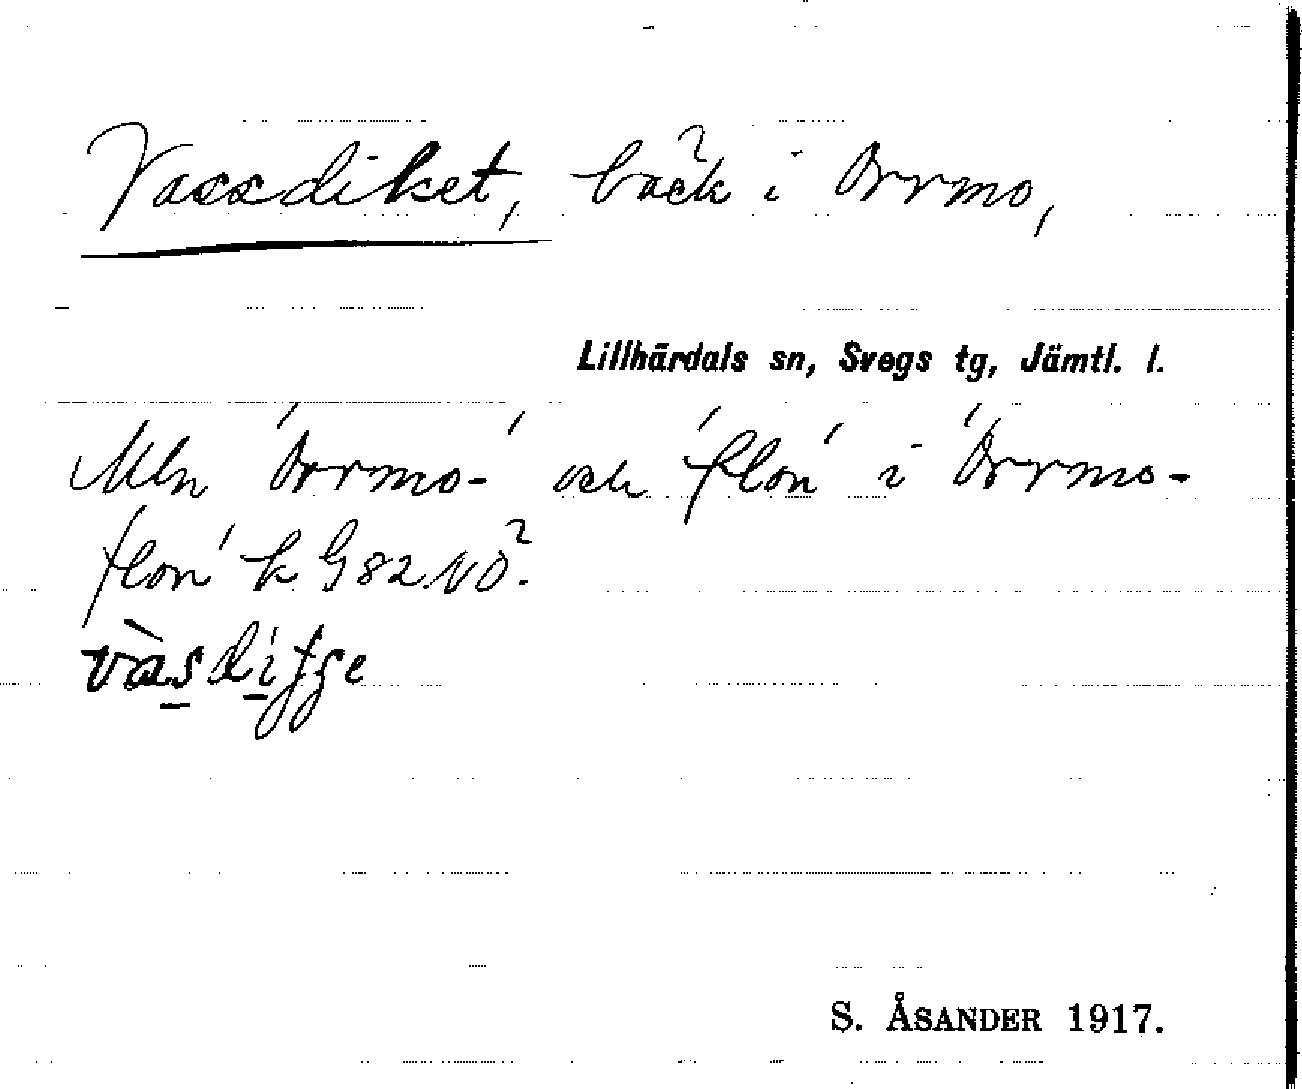 Vassdiket, bäck i Orrmo,
Lillhärdals sn, Svegs tg, Jämtl. l.
Mln 'Orrmo-' och 'flon' i 'Orrmo-
flon' k G82NO.
vàsdi̱gge
S. ÅSANDER 1917.